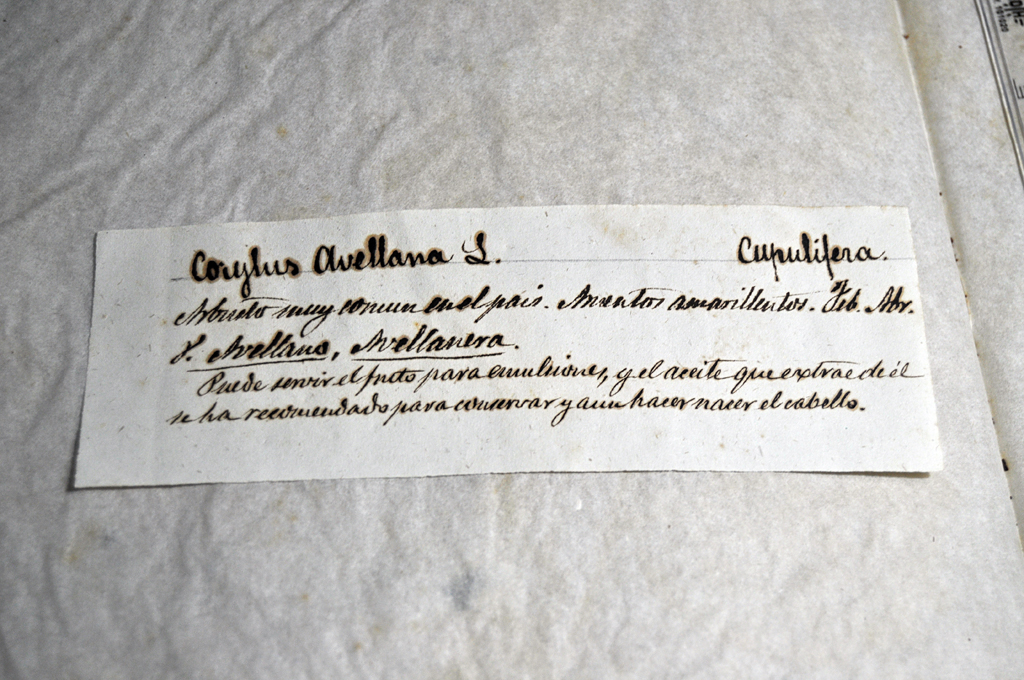 Corylus Avellana L. Cupulífera.
Arbusto muy comun en el pais. Amentos amarillentos. Feb. Abr.
Avellano, Avellanera.
Puede servir el fruto para emulsiones, y el aceite que extrae de él
se ha recomendado para conservar y aun hacer nacer el cabello.